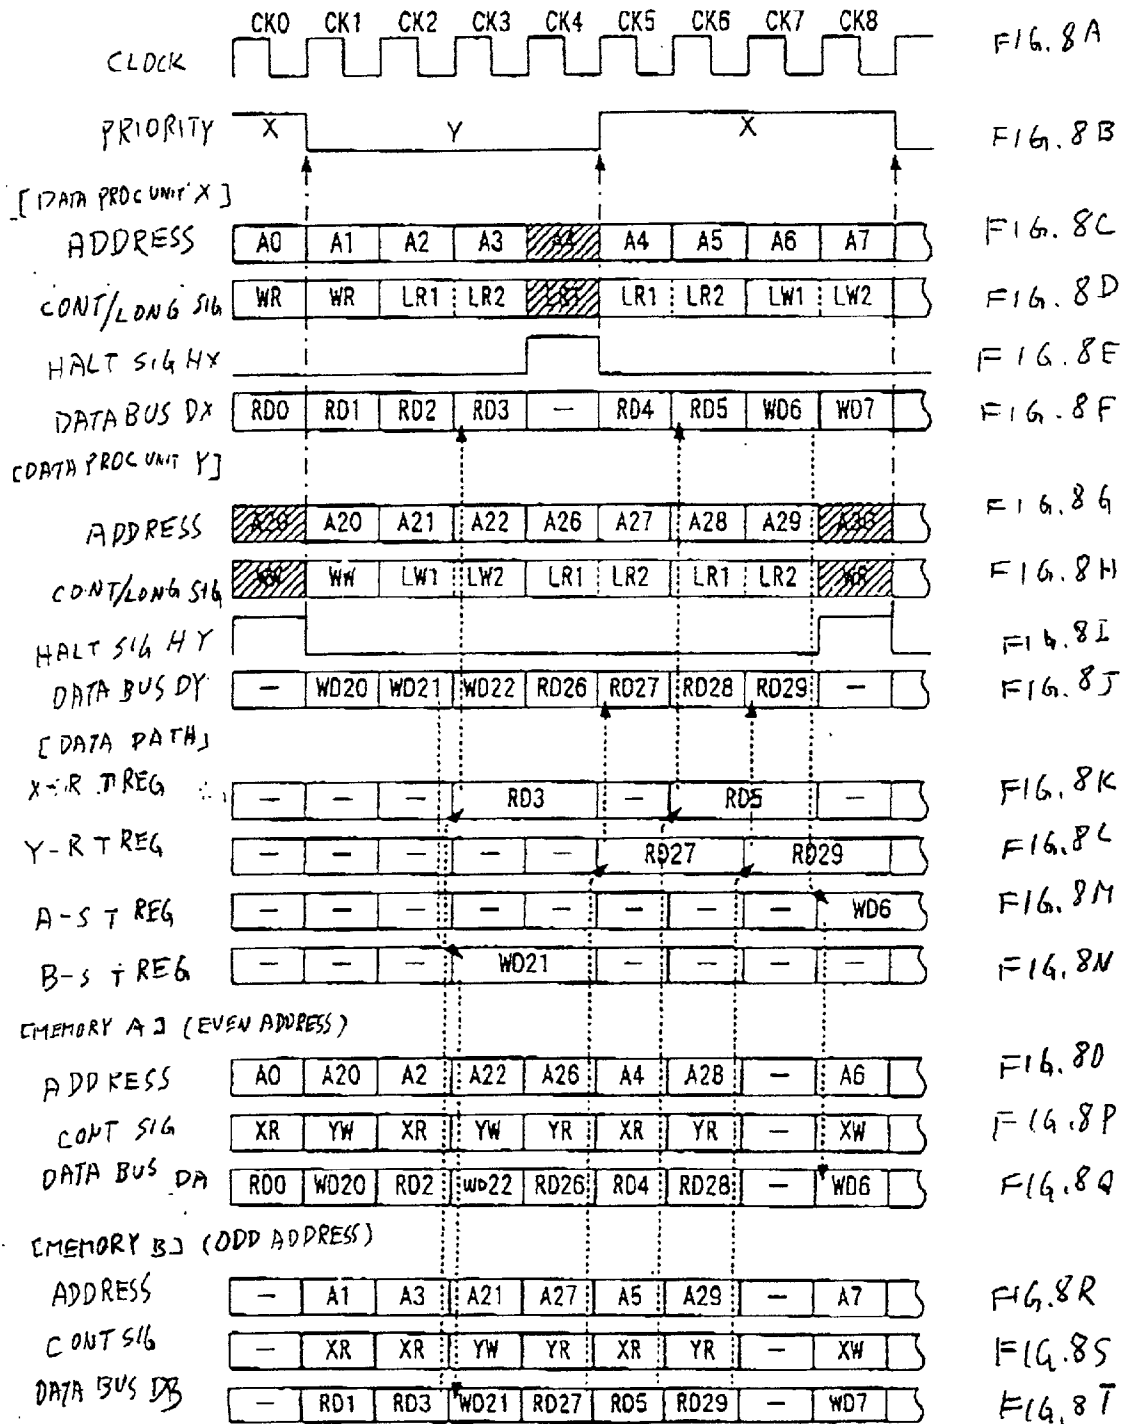 CK0 CK1 CK2 CK3 CK4 CK5 CK6 CK7 CK8
CLOCK FIG. 8A
PRIORITY X Y X FIG. 8B
[DATA PROC UNIT X]
ADDRESS A0 A1 A2 A3 A4 A4 A5 A6 A7 FIG. 8C
CONT/LONG SIG WR WR LR1 LR2 LR1 LR1 LR2 LW1 LW2 FIG. 8D
HALT SIG HX FIG. 8E
DATA BUS DX RD0 RD1 RD2 RD3 — RD4 RD5 WD6 WD7 FIG. 8F
[DATA PROC UNIT Y]
ADDRESS A20 A20 A21 A22 A26 A27 A28 A29 A30 FIG. 8G
CONT/LONG SIG WW WW LW1 LW2 LR1 LR2 LR1 LR2 WR FIG. 8H
HALT SIG HY FIG. 8I
DATA BUS DY — WD20 WD21 WD22 RD26 RD27 RD28 RD29 — FIG. 8J
[DATA PATH]
X-R T REG — — — RD3 — RD5 — FIG. 8K
Y-R T REG — — — — — RD27 RD29 FIG. 8L
A-S T REG — — — — — — — — WD6 FIG. 8M
B-S T REG — — — WD21 — — — — FIG. 8N
[MEMORY A] (EVEN ADDRESS)
ADDRESS A0 A20 A2 A22 A26 A4 A28 — A6 FIG. 8O
CONT SIG XR YW XR YW YR XR YR — XW FIG. 8P
DATA BUS DA RD0 WD20 RD2 WD22 RD26 RD4 RD28 — WD6 FIG. 8Q
[MEMORY B] (ODD ADDRESS)
ADDRESS — A1 A3 A21 A27 A5 A29 — A7 FIG. 8R
CONT SIG — XR XR YW YR XR YR — XW FIG. 8S
DATA BUS DB — RD1 RD3 WD21 RD27 RD5 RD29 — WD7 FIG. 8T